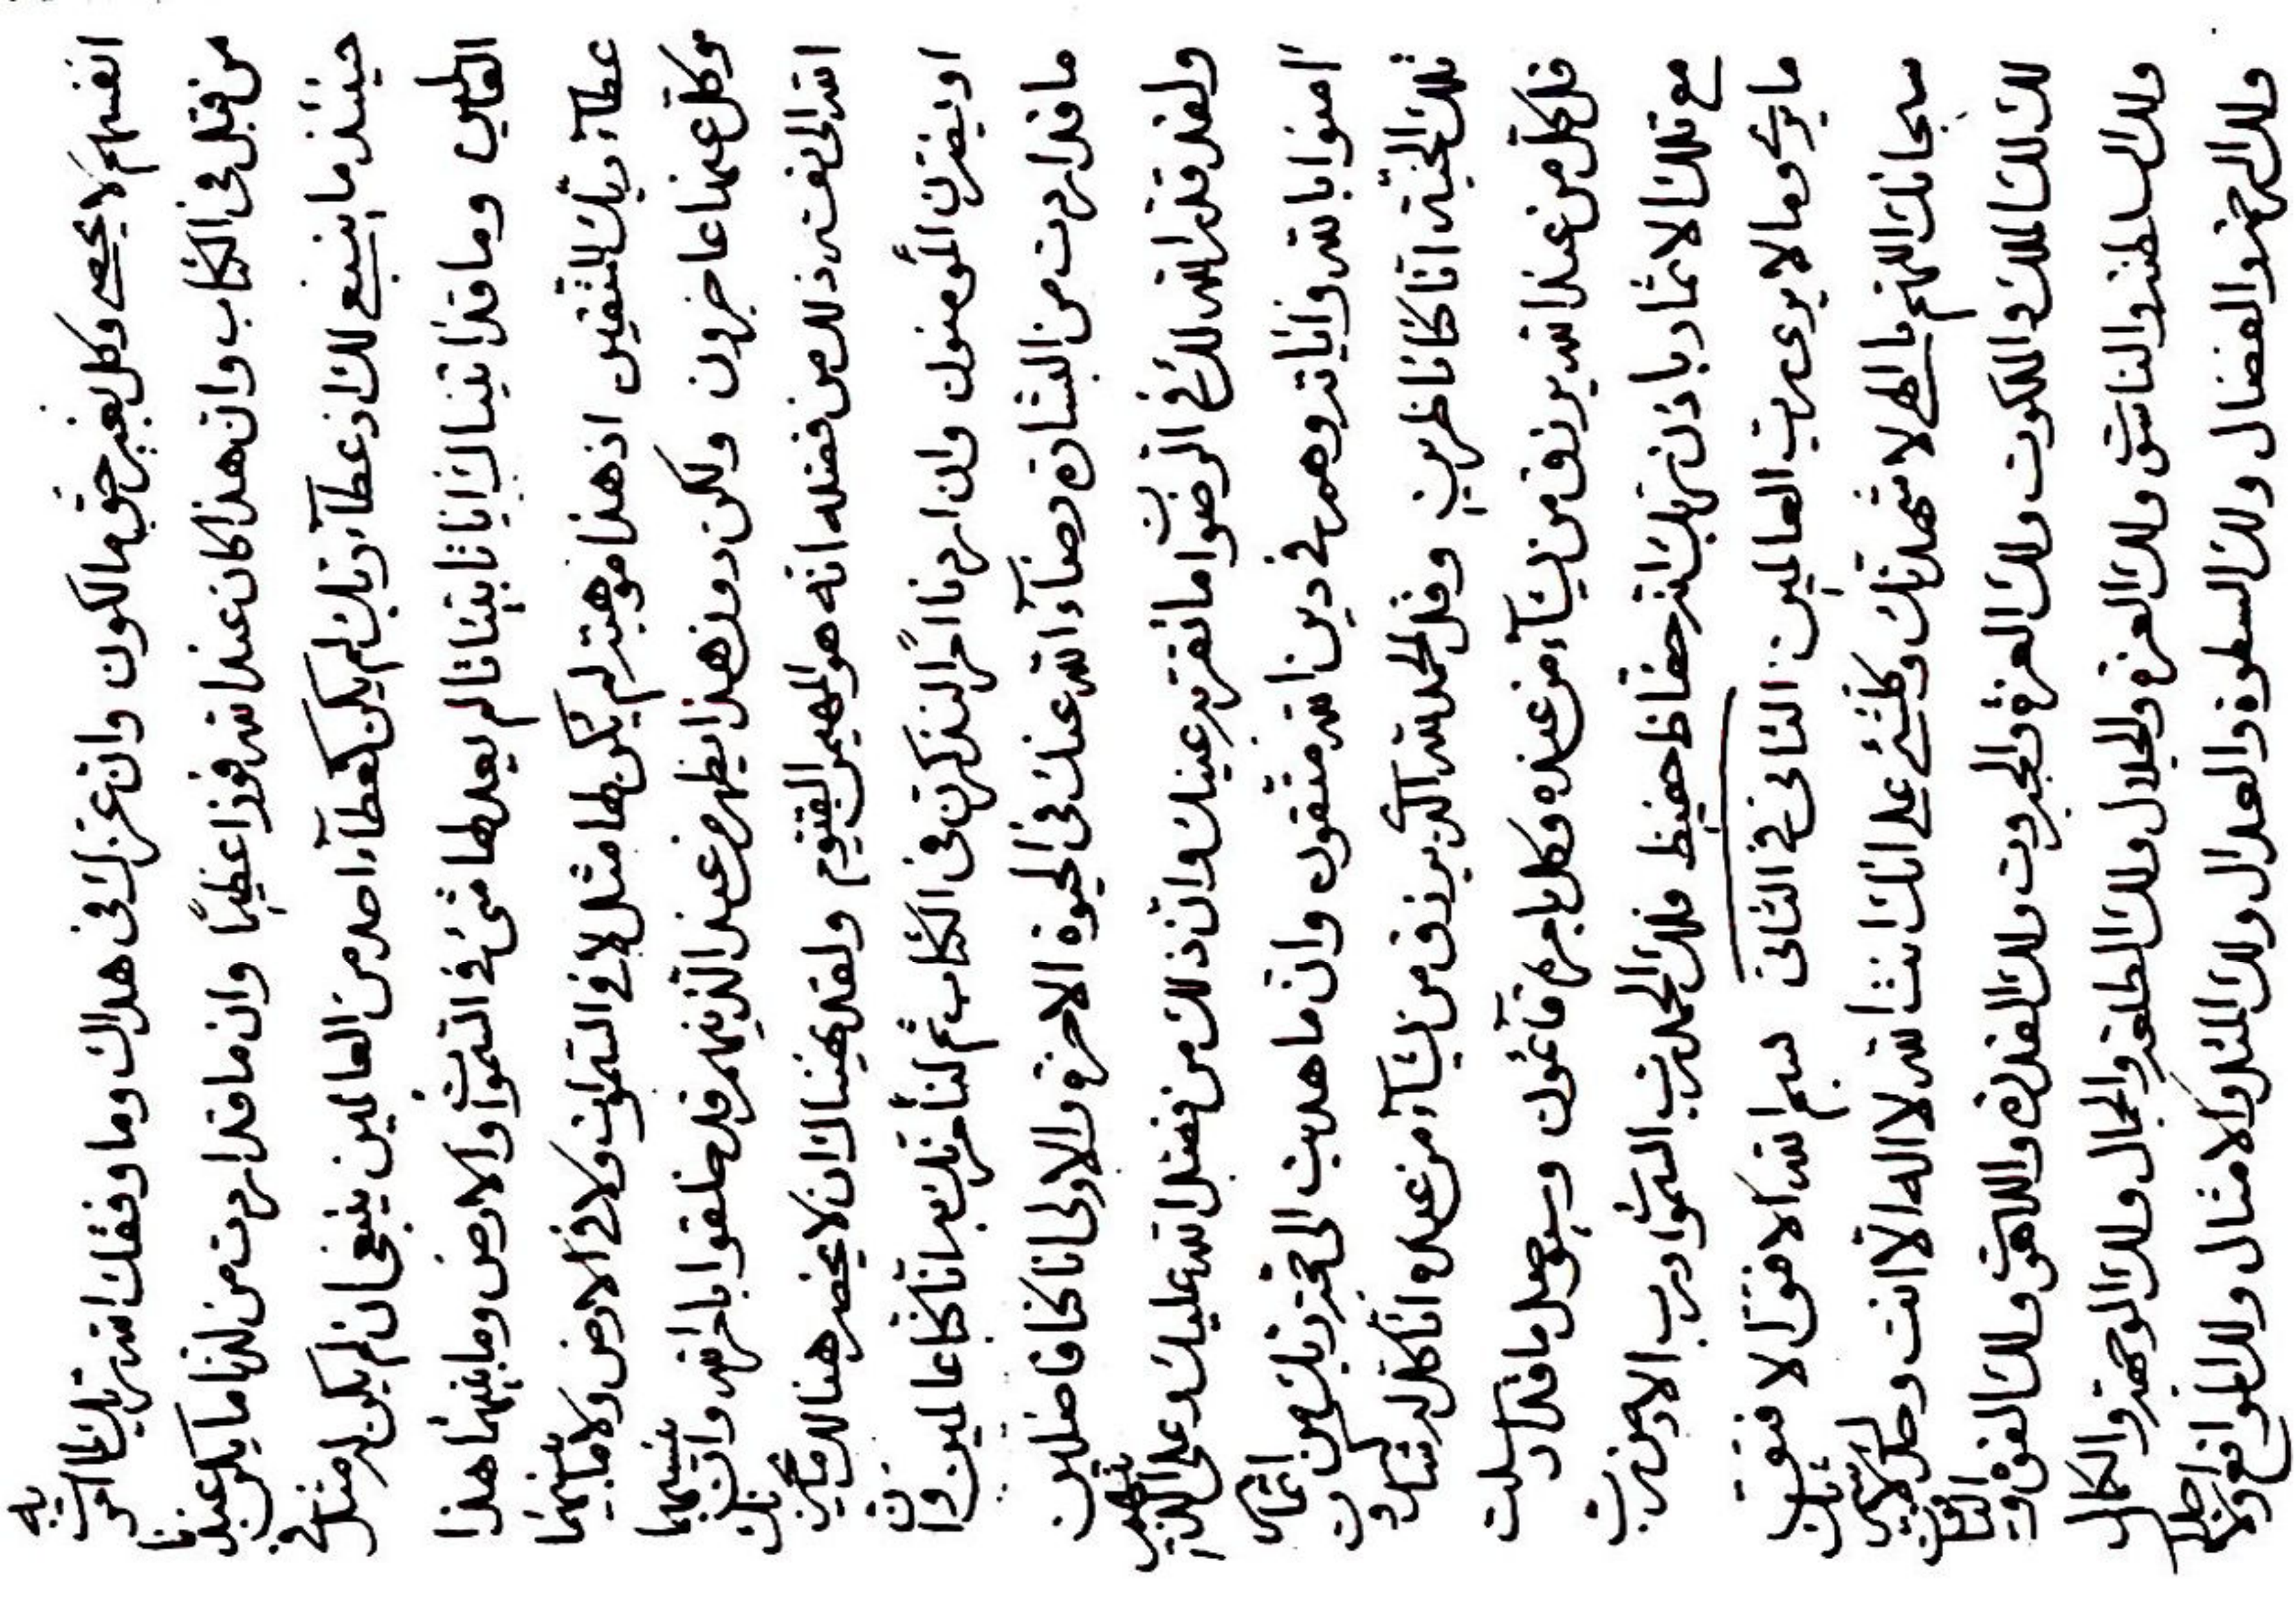 انفسهم لا يحصى وكل بغير حق مالكون وان عزك فى هداك وما وفقك الله ربك
من قبل فى الكتاب وان هذا كان عند الله فوزا عظيما وان ما قد اردت من لدنا ما يكن عندنا
حينئذ ما ينبغى لك اذ عطآء ربك لم يكن كعطآء احد من العالمين ينبغى ان لم يكن له مثل فى
العالمين وما قد اتيناك ايانا بينات لم يعدلها شئ فى السموات والارض وما بينهما هذا
عطآء ربك للمتقين اذ هذا موهبة لم يكن لها مثل لا فى السموات ولا فى الارض ولا ما بينهما
وكل عنها عاجزون ولكن دون هذا يظهر من عند الذينهم قد خلقوا وان
الله الى نفسه ذلك من فضله انه هو المهيمن القيوم ولقد ان لا يحضر هنالك
المؤمنون وان اردنا لنذكرن فى الكتاب ثم لنأمرنك انا كنا عالمين وان
ما قد اردت من البشارة رضآء الله عنك فى الحيوة الاخرة والاولى انا كنا فاضلين
ولقد قدر الله لك فى الرضوان ما تقر به عينك وان ذلك من فضل الله عليك وعلى الذين
امنوا بالله واياته وهم فى دين الله متقون وان ما هديت الى ربك من اثمار
تلك الجنة انا كنا ناظرين وقل الحمد لله الذى يرزق من يشآء من عنده وانا كل له شاكرون
قل كل من عند الله يرزق من يشآء من عنده وكل بامره قآئمون وسيوصل ما قد ارسلت
مع تلك الاثمار باذن ربك انه حفاظ حفيظ فلله الحمد رب السموات ورب الارض رب
ما يرى وما لا يرى رب العالمين الثانى فى الثانى بسم الله الافوق الافوق
سبحانك اللهم يا الهى لاشهدنك وكلشئ على انك انت الله لا اله الا انت وحدك لا شريك
لك لك الملك والملكوت ولك العزة والجبروت ولك القدرة واللاهوت ولك القوة والياقوت
ولك السلطنة والناسوت ولك العزة والجلال ولك الطلعة والجمال ولك الوجهة والكمال
ولك الرحمة والفضال ولك السطوة والعدال ولك المثل والامثال ولك المواقع والاجلال